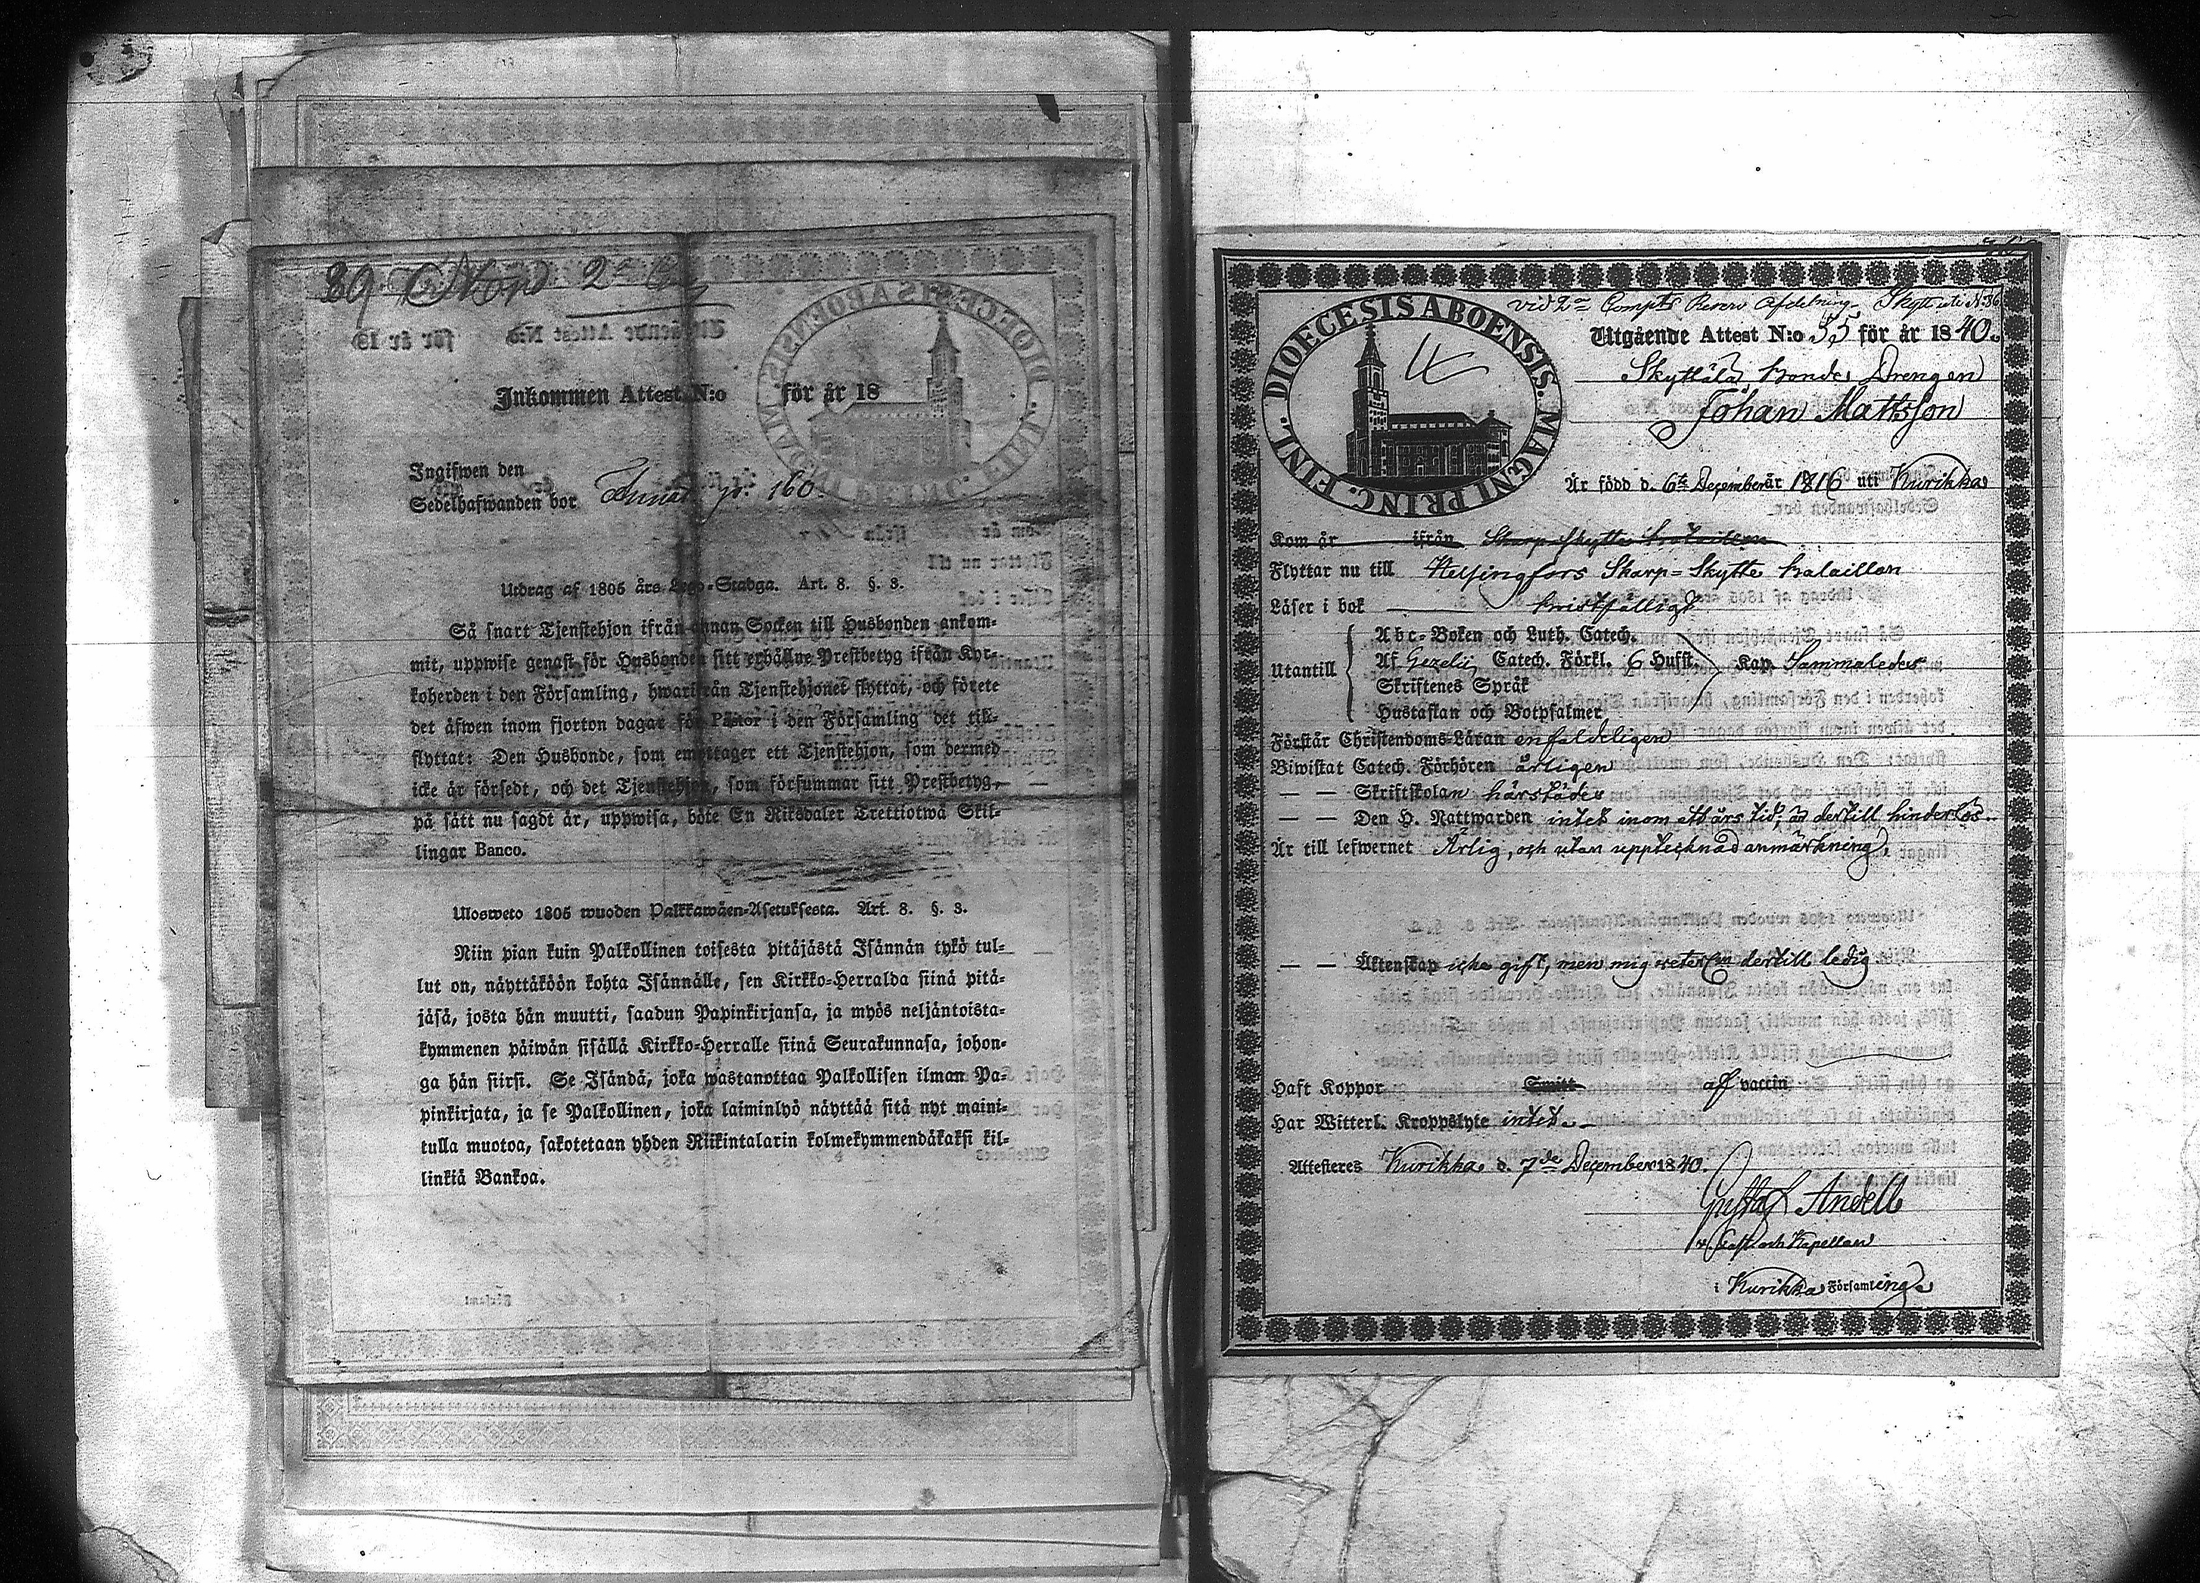 89
2
Inkommen Attest N:o för år 18
Ingifwen den
Sedelhafwanden bor 160.
Utdrag af 1805 års Lego-Stadga. Art. 8. §. 3.
Så snart Tjenstehjon ifrån annan Socken till Husbonden ankom-
mit, uppwise genast för Husbonden sitt erhållne Prestbetyg ifrån Kyr-
koherden i den Församling, hwarifrån Tjenstehjonet flyttat, och förete
det äfwen inom fjorton dagar för Pastor i den Församling det till-
flyttat: Den Husbonde, som emottager ett Tjenstehjon, som dermed
icke är försedt, och det Tjenstehjon, som försummar sitt Prestbetyg,
på sätt nu sagdt är, uppwisa, böte En Riksdaler Trettiotwå Skil-
lingar Banco.
Ulosweto 1805 wuoden Palkkawäen-Asetuksesta. Art. 8. §. 3.
Niin pian kuin Palkollinen toisesta pitäjästä Isännän tykö tul-
lut on, näyttäköön kohta Isännälle, sen Kirkko-Herralda siinä pitä-
jäsä, josta hän muutti, saadun Papinkirjansa, ja myös neljäntoista-
kymmenen päiwän sisällä Kirkko-Herralle siinä Seurakunnasa, johon-
ga hän siirsi. Se Isändä, joka wastanottaa Palkollisen ilman Pa-
pinkirjata, ja se Palkollinen, joka laiminlyö näyttää sitä nyt maini-
tulla muotoa, sakotetaan yhden Riikintalarin kolmekymmendäkaksi kil-
linkiä Bankoa.
DIOECESIS ABOENSIS. MAGNI PRINC. FINL.
vid 2n Comp:ts Reserv Afdelning Skytt N:86
Utgående Attest N:o 55 för år 1840.
Skyttälä Bonde Drengen
Johan Mattsson
Är född d. 6te December år 1816 uti Kurikka
Kom år ifrån Skarpskytte bataillon
Flyttar nu till Helsingfors Skarp-Skytte bataillon
Läser i bok bristfälligt
Abc-Boken och Luth. Catech.
Utantill Af Gezelii Catech. Förkl. 6 Hufst. Kap. Sammaledes
Skriftenes Språk
Hustaflan och Botpsalmer
Förstår Christendoms-Läran enfaldeligen
Biwistat Catech. Förhören årligen
— — Skriftskolan härstädes
— — Den H. Nattwarden intet inom ett års tid, är dertill hinderlös.
Är till lefwernet Ärlig, och utan upptecknad anmärkning,
— — Äktenskap icke gift, men mig veterl:n dertill ledig.
Haft Koppor Smitt af vaccin
Har Witterl. Kroppslyte intet.
Attesteres Kurikka d. 7de December 1840.
Gustaf Andell
v. Past. och Kapellan
i Kurikka Församling